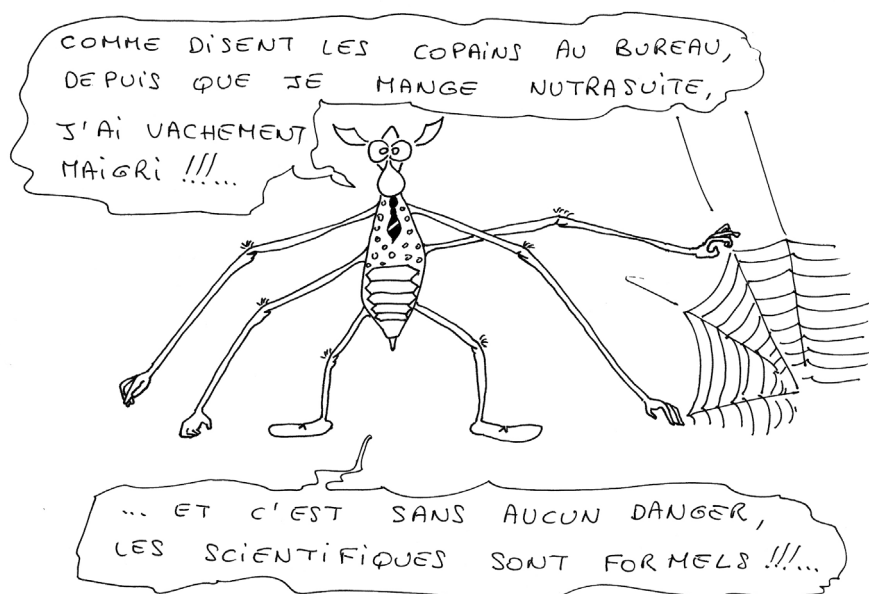 COMME DISENT LES COPAINS AU BUREAU,
DEPUIS QUE JE MANGE NUTRASUITE,
J'AI VACHEMENT
MAIGRI !!!...
... ET C'EST SANS AUCUN DANGER,
LES SCIENTIFIQUES SONT FORMELS !!!...